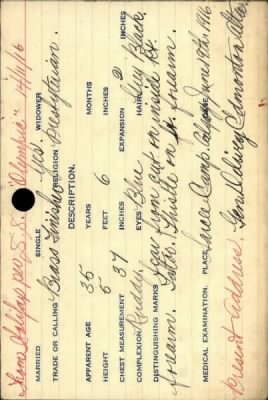 From Halifax per S.S. "Olympic" 14/11/16
MARRIED SINGLE Yes. WIDOWER
TRADE OR CALLING Brass Finisher RELIGION Presbyterian.
DESCRIPTION.
APPARENT AGE 35 YEARS MONTHS
HEIGHT 5 FEET 6 INCHES
CHEST MEASUREMENT 37 INCHES EXPANSION 2 INCHES
COMPLEXION Ruddy. EYES Blue HAIR Black.
DISTINGUISHING MARKS Scar from cut on inside Rt.
forearm. Tatoo. Thistle on forearm.
MEDICAL EXAMINATION. PLACE Camp Calgary June 19th, 1916
Present address. Edmonton Alta